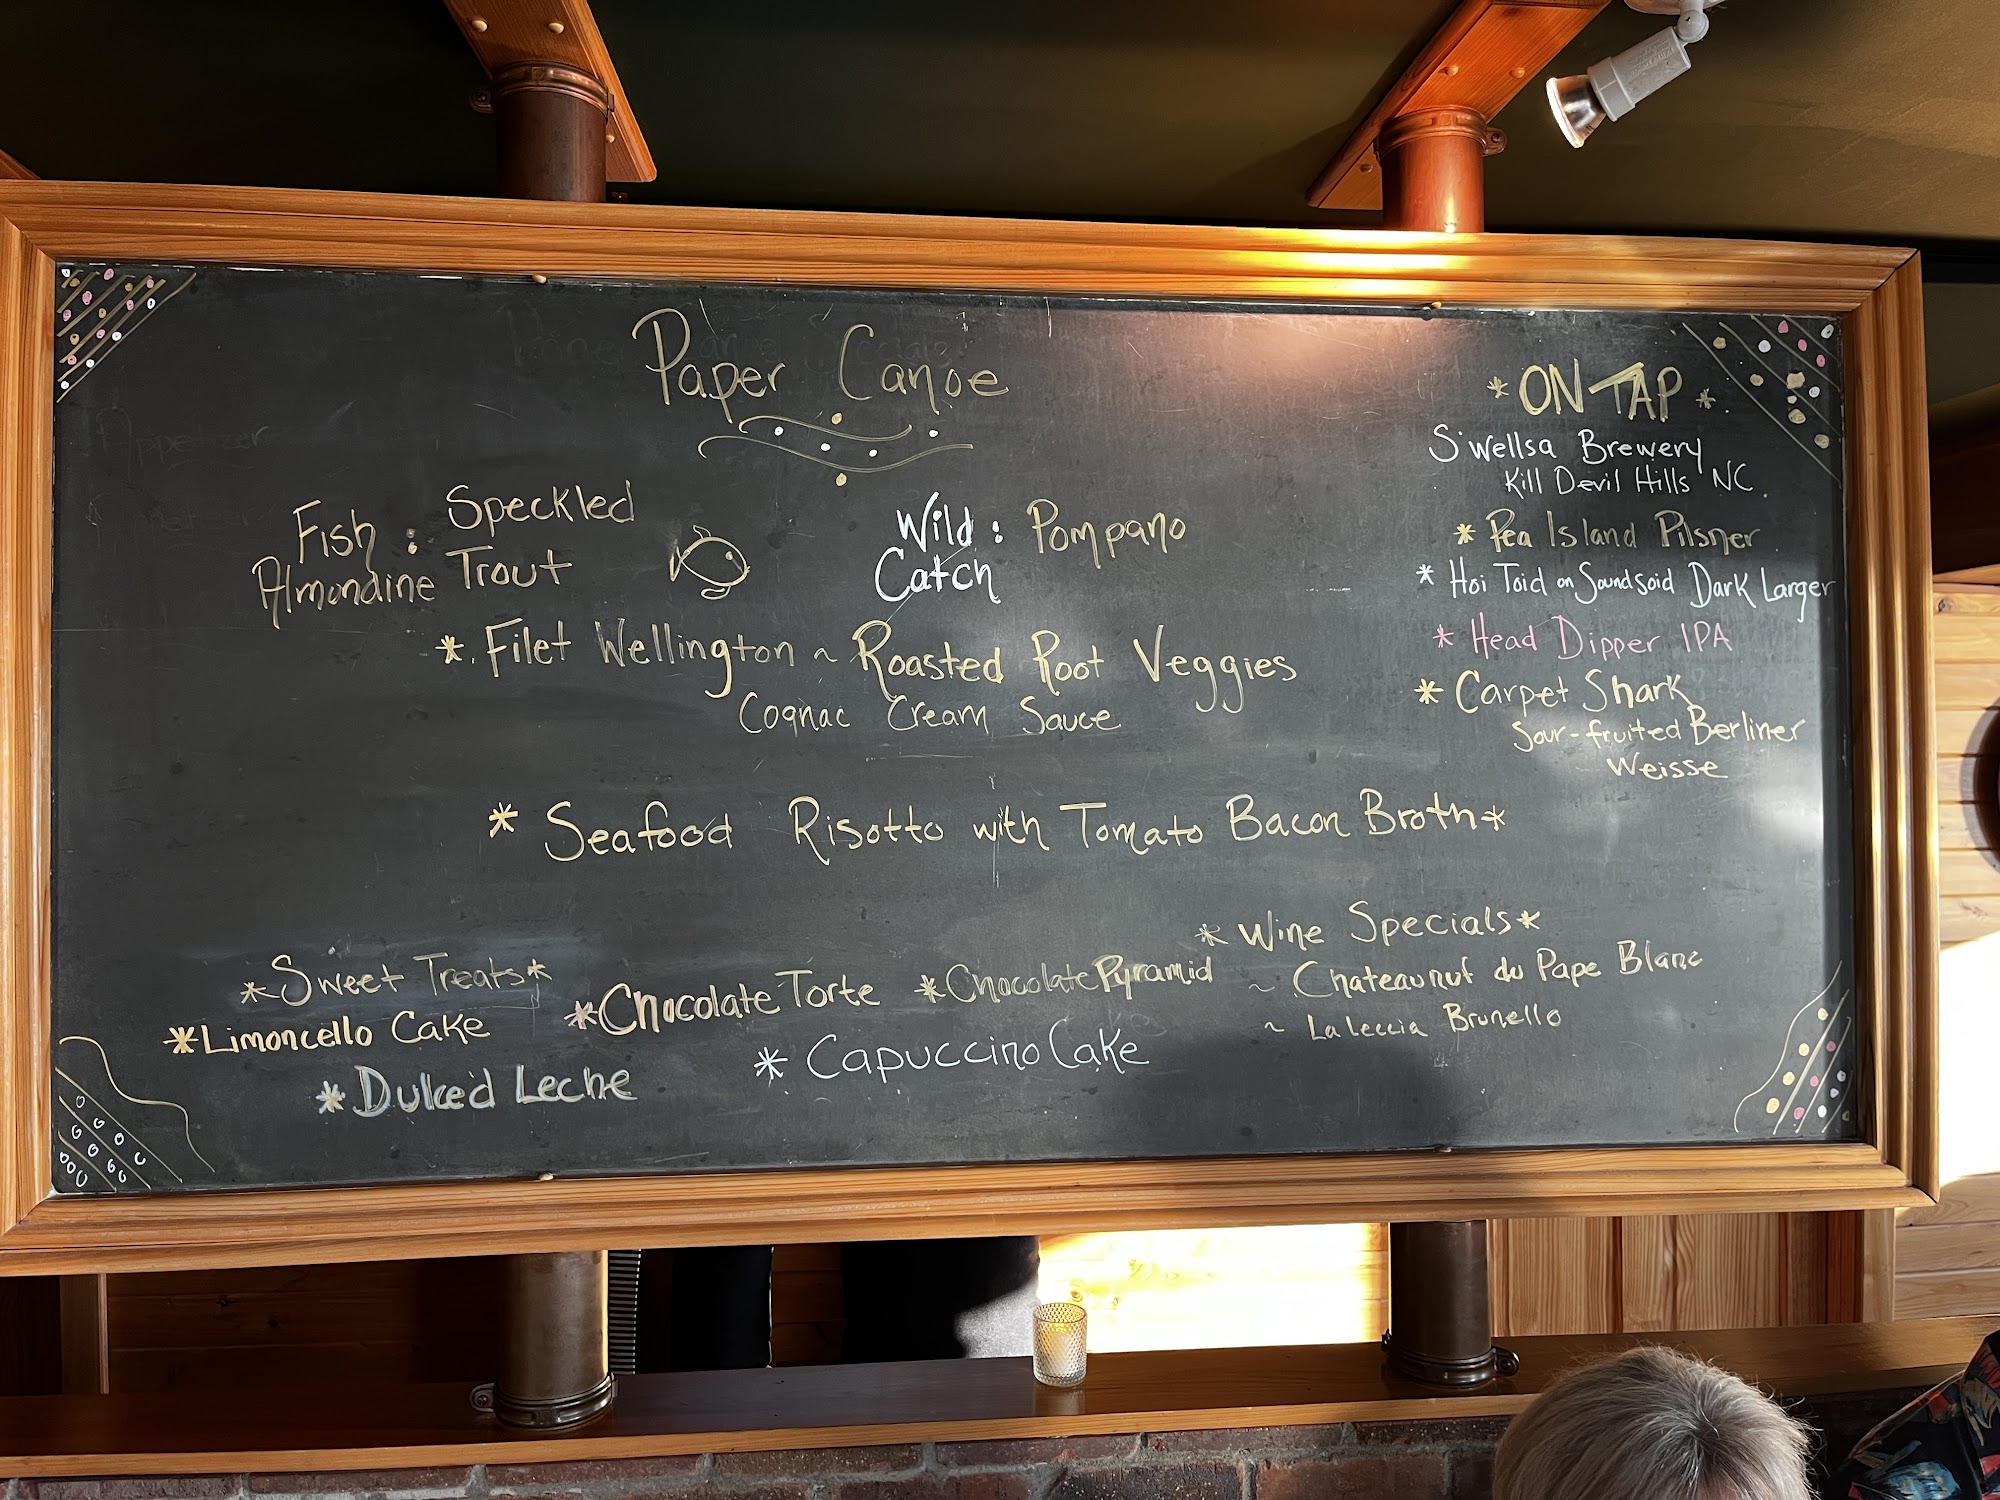 Paper Canoe
Fish : Speckled
Almondine Trout
Wild : Pompano
Catch
* Filet Wellington ~ Roasted Root Veggies
Cognac Cream Sauce
* Seafood Risotto with Tomato Bacon Broth *
* ON TAP *
S'wellsa Brewery
Kill Devil Hills NC.
* Pea Island Pilsner
* Hoi Toid on Soundsoid Dark Larger
* Head Dipper IPA
* Carpet Shark
Sour-fruited Berliner
Weisse
* Sweet Treats *
* Limoncello Cake
* Dulce'd Leche
* Chocolate Torte
* Chocolate Pyramid
* Capuccino Cake
* Wine Specials *
~ Chateaunuf du Pape Blanc
~ La Leccia Brunello
Appetizer